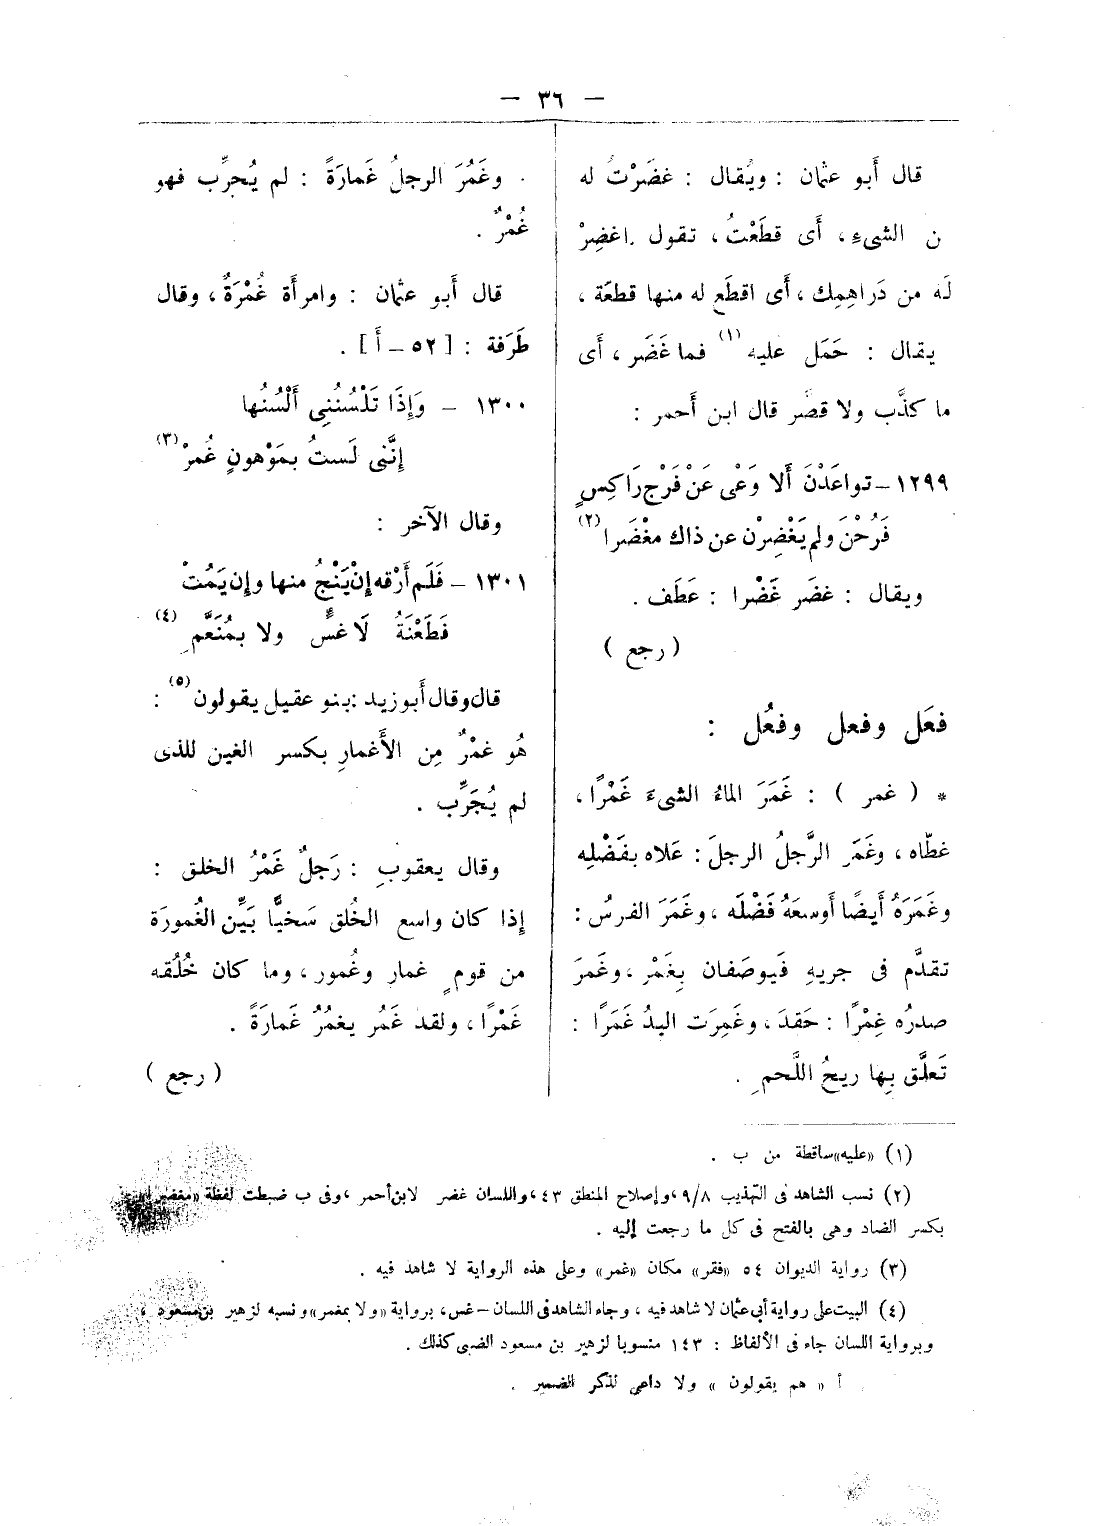 — ٣٦ —
قال أَبو عثمان : ويُقال : غضَرْتُ له
ن الشىءِ ، أَى قطَعْتُ ، تقول اغضِرْ
لَه من دَراهِمِك ، أَى اقطَع له منها قطعَة ،
يقال : حَمَل عليه (١) فما غَضَر ، أَى
ما كذَّب ولا قصَّر قال ابن أَحمر :
١٢٩٩ – تواعَدْنَ أَلا وَعْى عَنْ فَرْج رَاكِسٍ
فَرُحْنَ ولم يَغْضِرْن عن ذاك مغْضَرا (٢)
ويقال : غضَر غَضْرا : عَطَف .
( رجع )
فعَل وفعل وفعُل :
* ( غمر ) : غَمَرَ الماءُ الشىءَ غَمْرًا ،
غطّاه ، وغَمَر الرَّجلُ الرجلَ : عَلاه بفَضْلِه
وغَمَرَهُ أَيضًا أَوسعَهُ فَضْلَه ، وغَمَرَ الفرسُ :
تقدَّم فى جريهِ فَيوصَفان بِغَمْر ، وغَمرَ
صدرُه غِمْرًا : حَقدَ ، وغَمِرَت اليدُ غَمَرًا :
تَعلَّق بِها ريحُ اللَّحمِ .
وغَمُرَ الرجلُ غَمارَةً : لم يُجرِّب فهو
غُمْرٌ .
قال أَبو عثمان : وامرأَة غُمْرَةٌ ، وقال
طَرَفة : [ ٥٢ – أَ ] .
١٣٠٠ – وَإِذَا تَلْسُنُنِى أَلْسُنُها
إِنَّنى لَستُ بمَوْهونٍ غُمرْ (٣)
وقال الآخر :
١٣٠١ – فَلَم أَرْقه إِنْ يَنْجُ منها وإِن يَمُتْ
فَطَعْنَةُ لَا غسٍّ ولا بمُنَعَّمِ (٤)
قال وقال أَبو زيد : بنو عقيل يقولون (٥) :
هُو غمْرٌ مِن الأَغمارِ بكسر الغين للذى
لم يُجَرِّب .
وقال يعقوب : رَجلٌ غَمْرُ الخلق :
إِذا كان واسع الخُلق سَخيًّا بَيِّن الغُمورَة
من قومٍ غمار وغُمور ، وما كان خُلُقه
غَمْرًا ، ولقد غَمُر يغمُرُ غَمارَةً .
( رجع )
(١) «عليه» ساقطة من ب .
(٢) نسب الشاهد فى التهذيب ٩/٨ ، وإصلاح المنطق ٤٣ ، واللسان غضر لابن أحمر ، وفى ب ضبطت لفظة «مغضرا»
بكسر الضاد وهى بالفتح فى كل ما رجعت إليه .
(٣) رواية الديوان ٥٤ «فقر» مكان «غمر» وعلى هذه الرواية لا شاهد فيه .
(٤) البيت على رواية أبى عثمان لا شاهد فيه ، وجاء الشاهد فى اللسان – غس، برواية «ولا بمغمر» ونسبه لزهير بن مسعود ،
وبرواية اللسان جاء فى الألفاظ : ١٤٣ منسوبا لزهير بن مسعود الضبى كذلك .
أ « هم يقولون » ولا داعى لذكر الضمير .